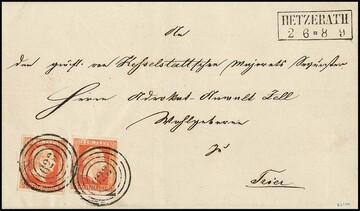 HETZERATH
2 6 8 9
An
den gräfl. von Kesselstatt'schen Majorats Besitzer
Herrn Advokat-Anwalt Zell
Wohlgeboren
zu
Trier